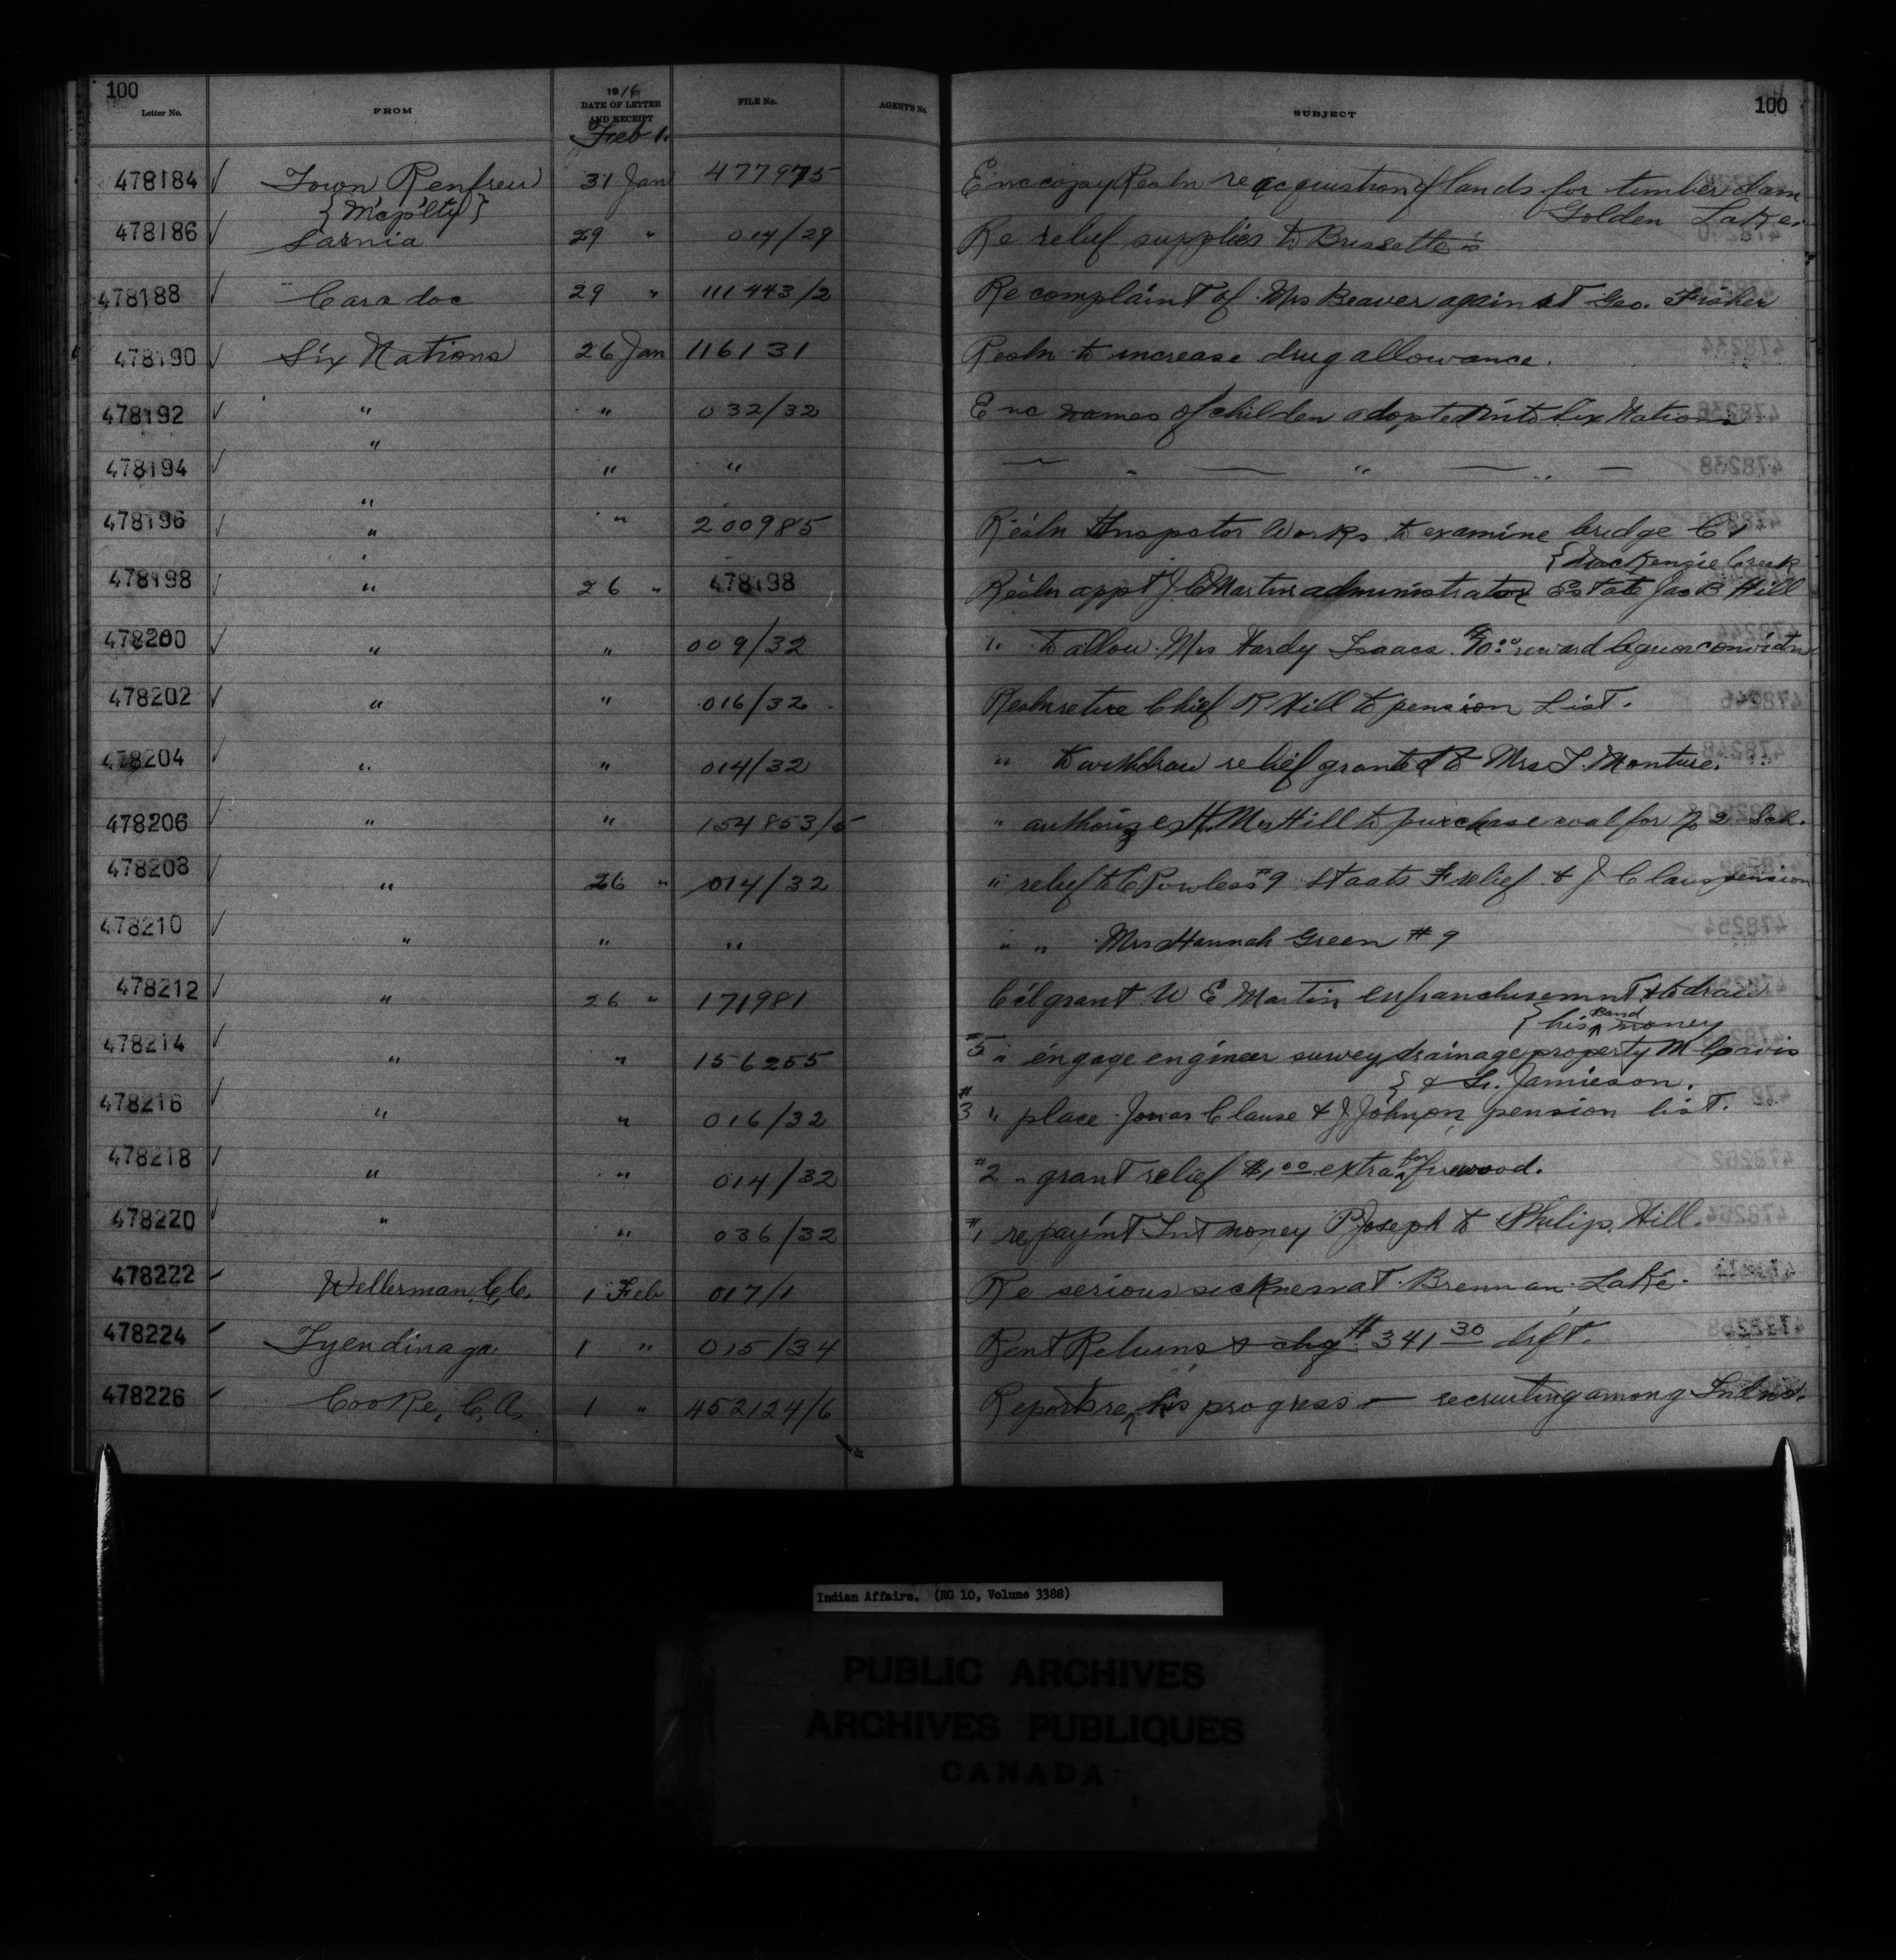 100
Letter No. FROM 1916 DATE OF LETTER AND RECEIPT FILE No. AGENT'S No. SUBJECT 100
Feb 1.
478184 ✓ Town Renfrew 31 Jan 477975 Enc copy Resln re acquistion of lands for timber dam
{Mcp'lty} Golden Lake.
478186 ✓ Sarnia 29 " 014/29 Re relief supplies to Brissette's
478188 ✓ Caradoc 29 " 111443/2 Re complaint of Mrs Beaver against Geo. Fisher
478190 ✓ Six Nations 26 Jan 116131 Resln to increase drug allowance.
478192 ✓ " " 032/32 Enc names of childen adopted into Six Nations
478194 ✓ " " " — " — " — " —
478196 ✓ " " 200985 Resln Inspctor Works to examine bridge
{MacKenzie Creek
478198 ✓ " 26 " 478198 Resln appt J C Martin administrator Estate Jas B Hill
478200 ✓ " " 009/32 " to allow Mrs Hardy Isaacs $10.00 reward liquor convictn
478202 ✓ " " 016/32 Resln retire Chief R Hill to pension List.
478204 ✓ " " 014/32 " to withdraw relief granted to Mrs T. Monture.
478206 ✓ " " 154853/5 " authorizes H. M. Hill to purchase coal for No 2 Sch.
478208 ✓ " 26 " 014/32 " relief to C Powless #9 Staats F relief & J Claus pension
478210 ✓ " " " " " Mrs Hannah Green #9
478212 ✓ " 26 " 171981 C'cl grant W E Martin enfranchisemnt & to draw
{his Band money
478214 ✓ " " 156255 #5 " engage engineer survey drainage property M Cavis
{& Jamieson.
478216 ✓ " " 016/32 #3 " place Jonas Clause & J Johnson pension list.
478218 ✓ " " 014/32 #2 " grant relief $1.00 extra for firewood.
478220 ✓ " " 036/32 #1 re paym't Int money P Joseph to Philip Hill.
478222 ✓ Wellerman C.C. 1 Feb 017/1 Re serious sickness at Brennan Lake.
478224 ✓ Tyendinaga 1 " 015/34 Rent Returns & chq $341 30 dft.
478226 ✓ Cooke, C. A. 1 " 452124/6 Reports re his progress — recruiting among Indns.
Indian Affairs. (RG 10, Volume 3388)
PUBLIC ARCHIVES
ARCHIVES PUBLIQUES
CANADA